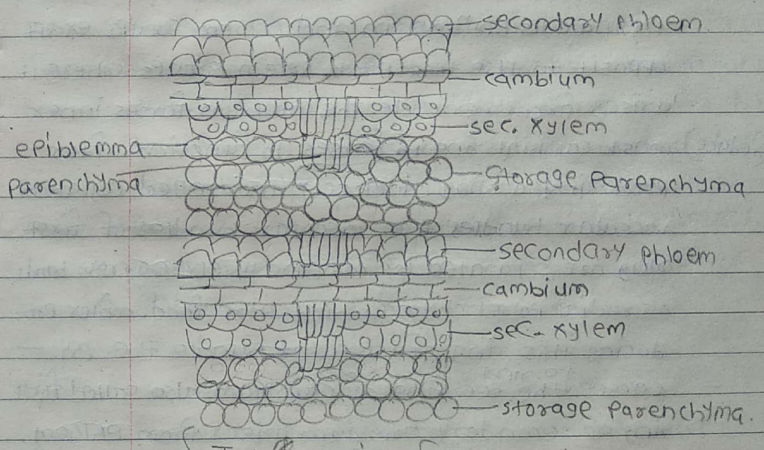 secondary phloem
cambium
sec. xylem
epiblemma
parenchyma
storage parenchyma
secondary phloem
cambium
sec. xylem
storage parenchyma.